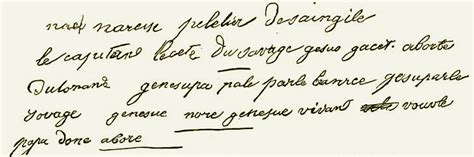 nael narcise peletier desaingile
le capitene lecote du savage gesus gacet aborte
Dulomane genesupa pale parle banrce gesuparle
sovage genesue nore genesue vivant vouvle
papa done abore